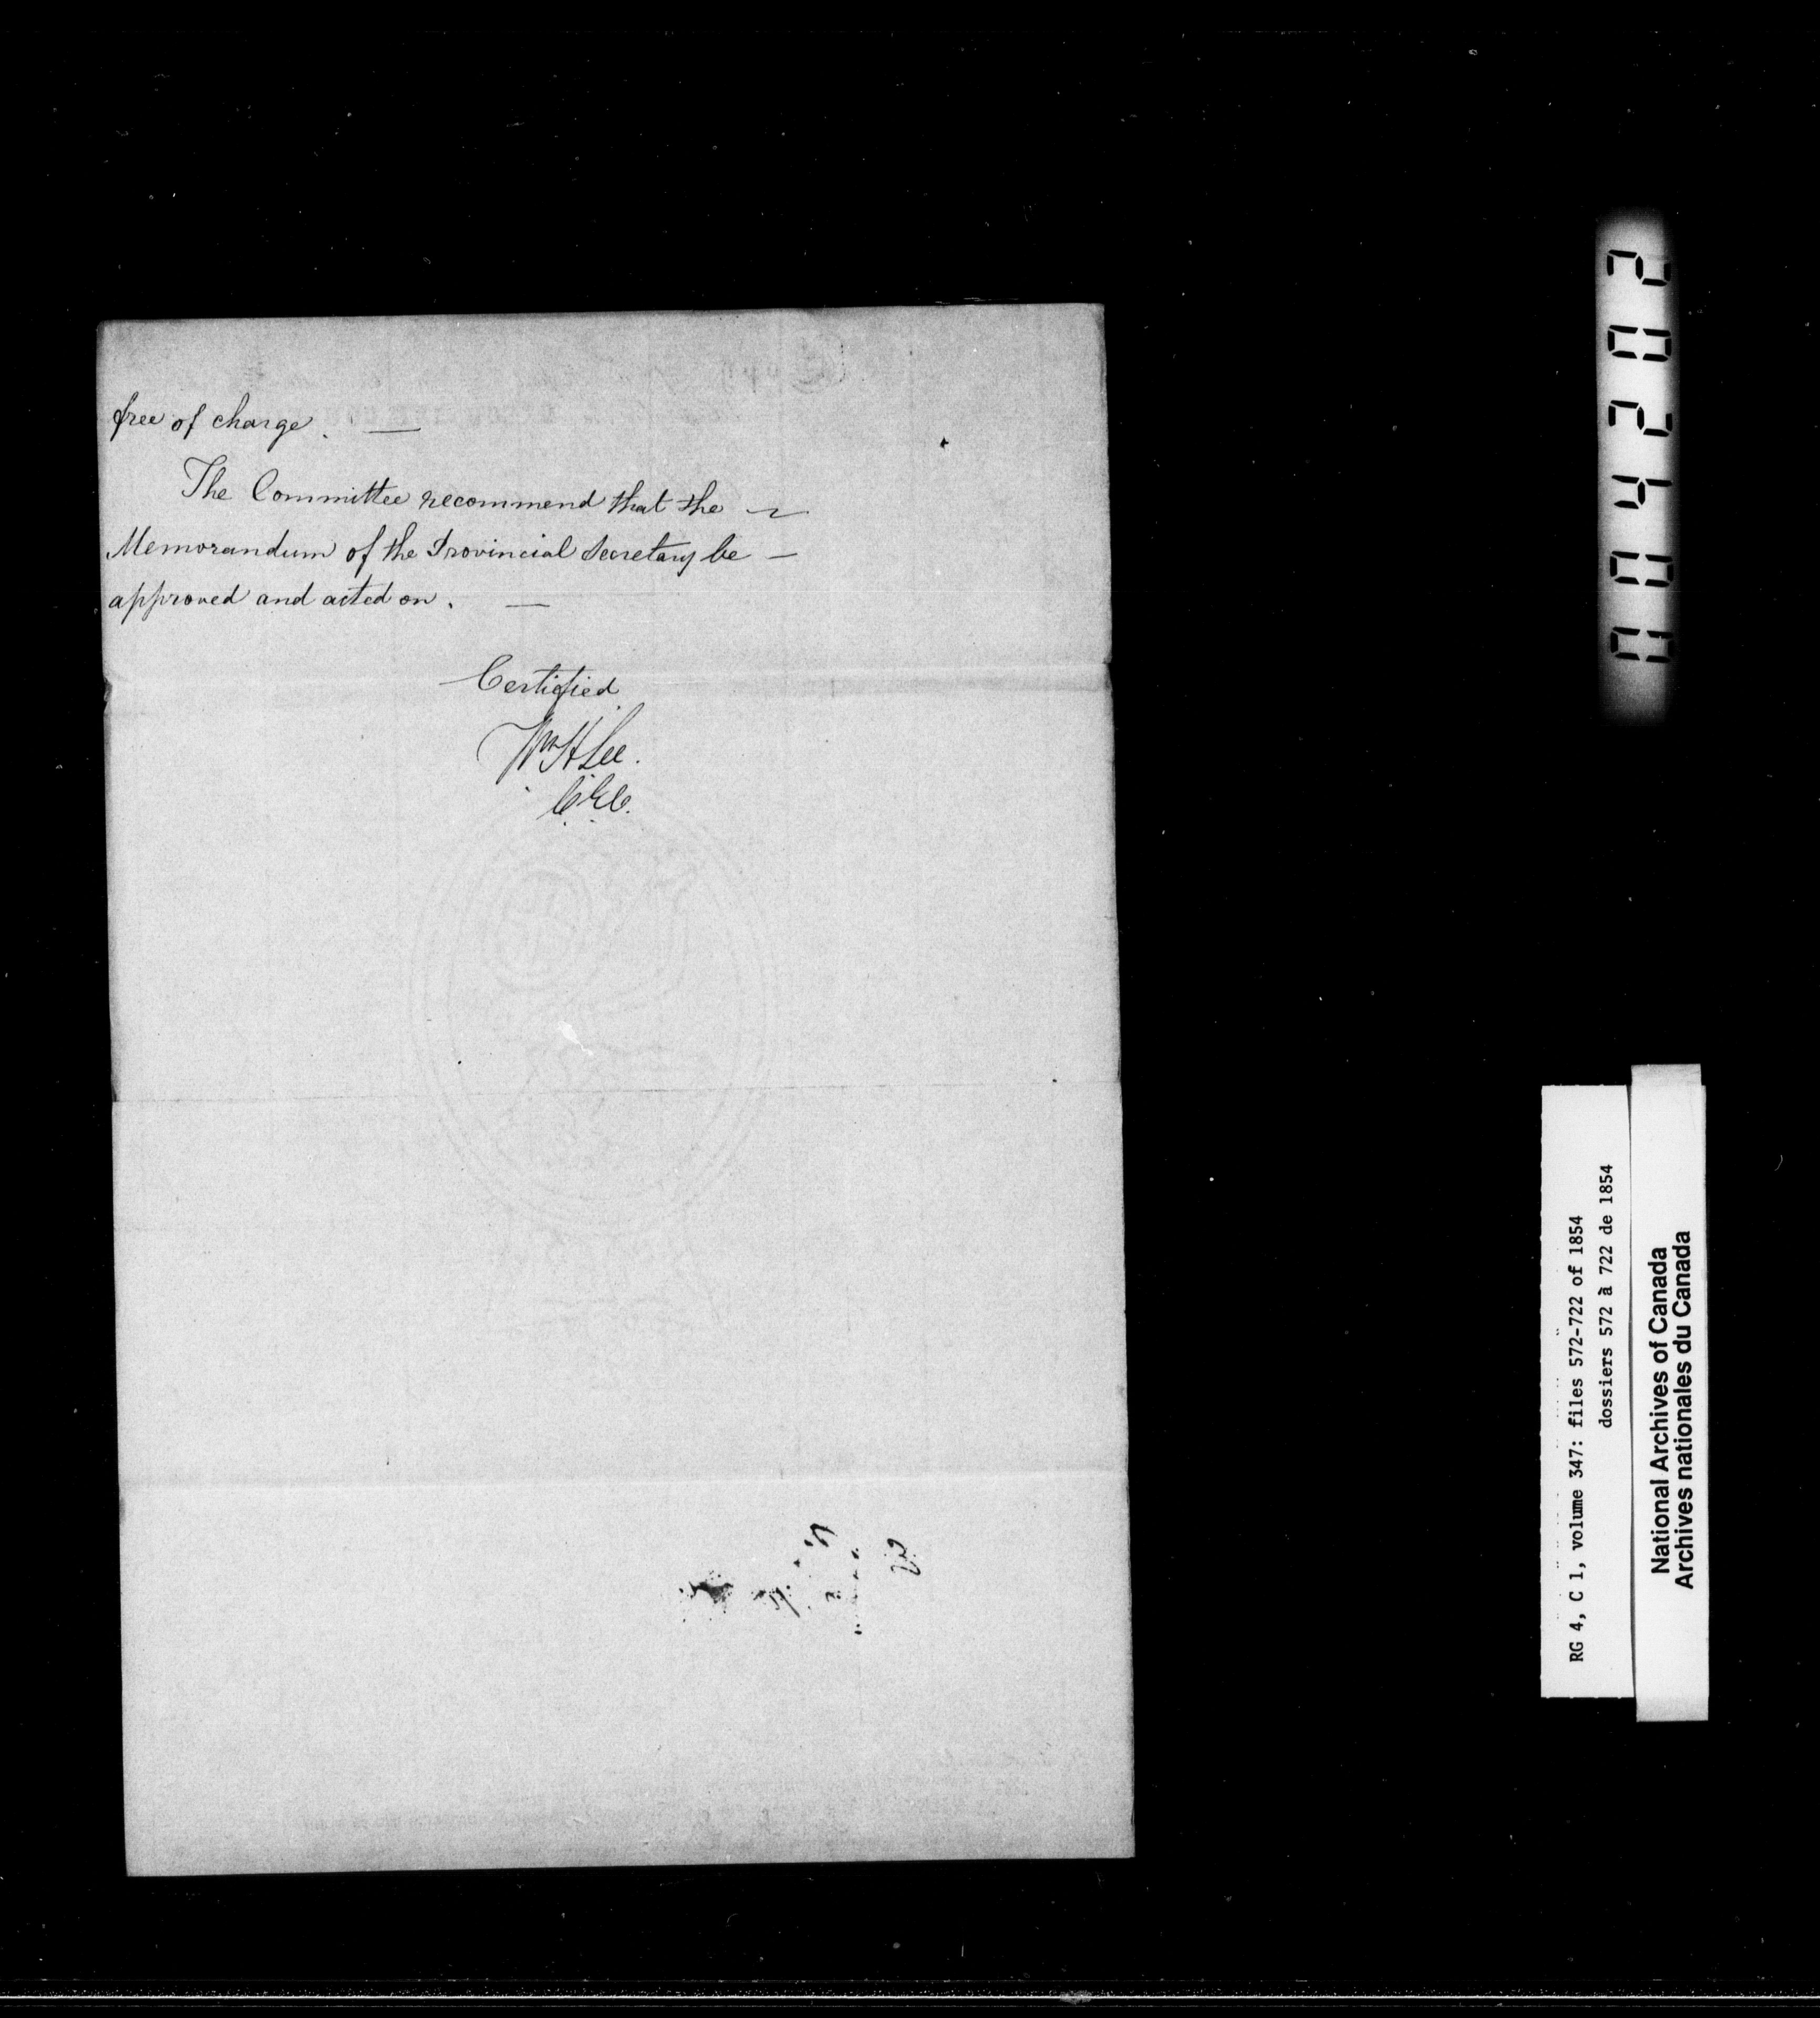 free of charge. —
The Committee recommend that the ~
Memorandum of the Provincial Secretary be —
approved and acted on. —
Certified
Wm H Lee.
C.E.C.
004202
RG 4, C 1, volume 347: files 572-722 of 1854
dossiers 572 à 722 de 1854
National Archives of Canada
Archives nationales du Canada